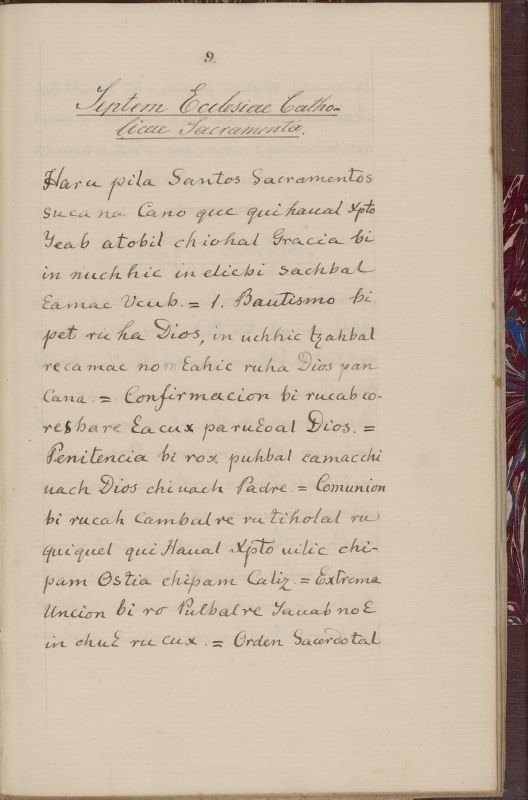 9.
Septem Ecclesiae Catho-
licae Sacramenta.
Haru pila Santos Sacramentos
suca na Cano que qui haual Xpto
Yeab atobil chiohal Gracia bi
in nuchhic in elicbi sachbal
Eamac Vcub. = 1. Bautismo bi
pet ru ha Dios, in uchhic tzahbal
recamac no Eahic ruha Dios pan
Cana. = Confirmacion bi rucab co-
resbare Eacux paruEoal Dios. =
Penitencia bi rox puhbal camacchi
uach Dios chiuach Padre. = Comunion
bi rucah Cambalre ru tiholal ru
quiquel qui Haual Xpto uilic chi-
pam Ostia chipam Caliz. = Extrema
Uncion bi ro Pulbalre Yauab noE
in chuE ru cux. = Orden Sacerdotal